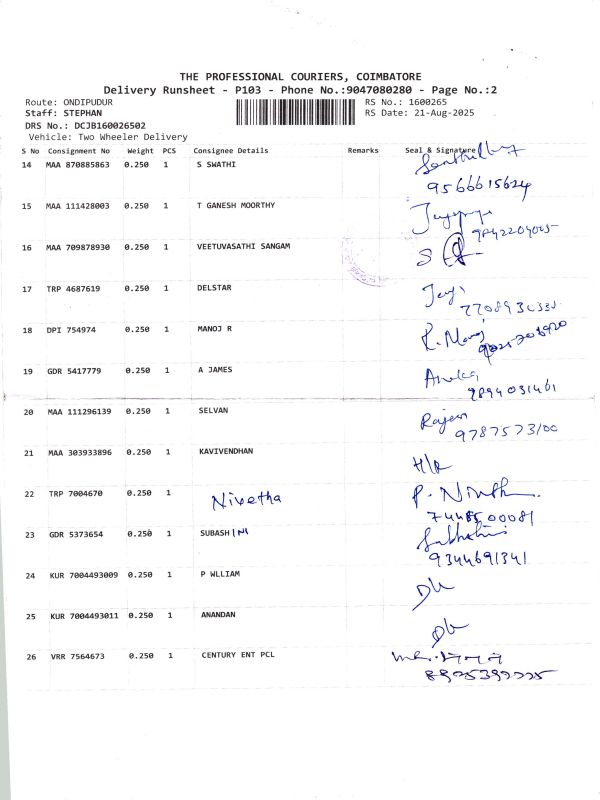 THE PROFESSIONAL COURIERS, COIMBATORE
Delivery Runsheet - P103 - Phone No.:9047080280 - Page No.:2
Route: ONDIPUDUR RS No.: 1600265
Staff: STEPHAN RS Date: 21-Aug-2025
DRS No.: DCJB160026502
Vehicle: Two Wheeler Delivery
S No Consignment No Weight PCS Consignee Details Remarks Seal & Signature
14 MAA 870885863 0.250 1 S SWATHI
9566615624
15 MAA 111428003 0.250 1 T GANESH MOORTHY
16 MAA 709878930 0.250 1 VEETUVASATHI SANGAM
17 TRP 4687619 0.250 1 DELSTAR
18 DPI 754974 0.250 1 MANOJ R
19 GDR 5417779 0.250 1 A JAMES
9894031461
20 MAA 111296139 0.250 1 SELVAN
9787573100
21 MAA 303933896 0.250 1 KAVIVENDHAN
H/R
22 TRP 7004670 0.250 1 Nivetha
7448500081
23 GDR 5373654 0.250 1 SUBASHINI
9344691341
24 KUR 7004493009 0.250 1 P WLLIAM
25 KUR 7004493011 0.250 1 ANANDAN
26 VRR 7564673 0.250 1 CENTURY ENT PCL